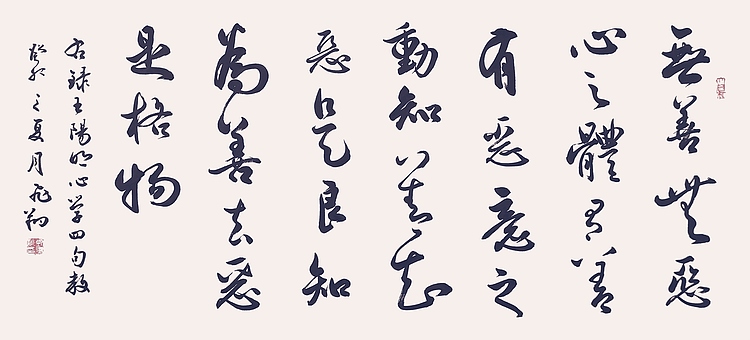 無善無惡
心之體有善
有惡意之
動知善知
惡是良知
為善去惡
是格物
右錄王陽明心學四句教
癸卯之夏月飛翔